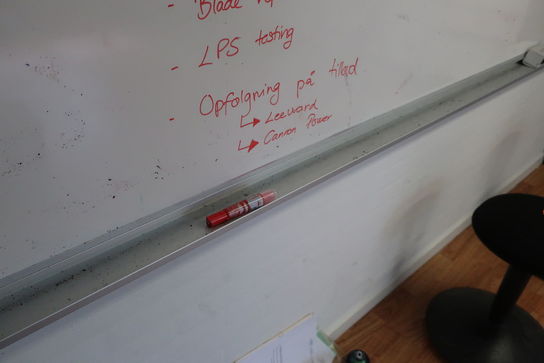 - Blade
- LPS testing
- Opfølgning på tilbud
↳ Leeward
↳ Cannon Power